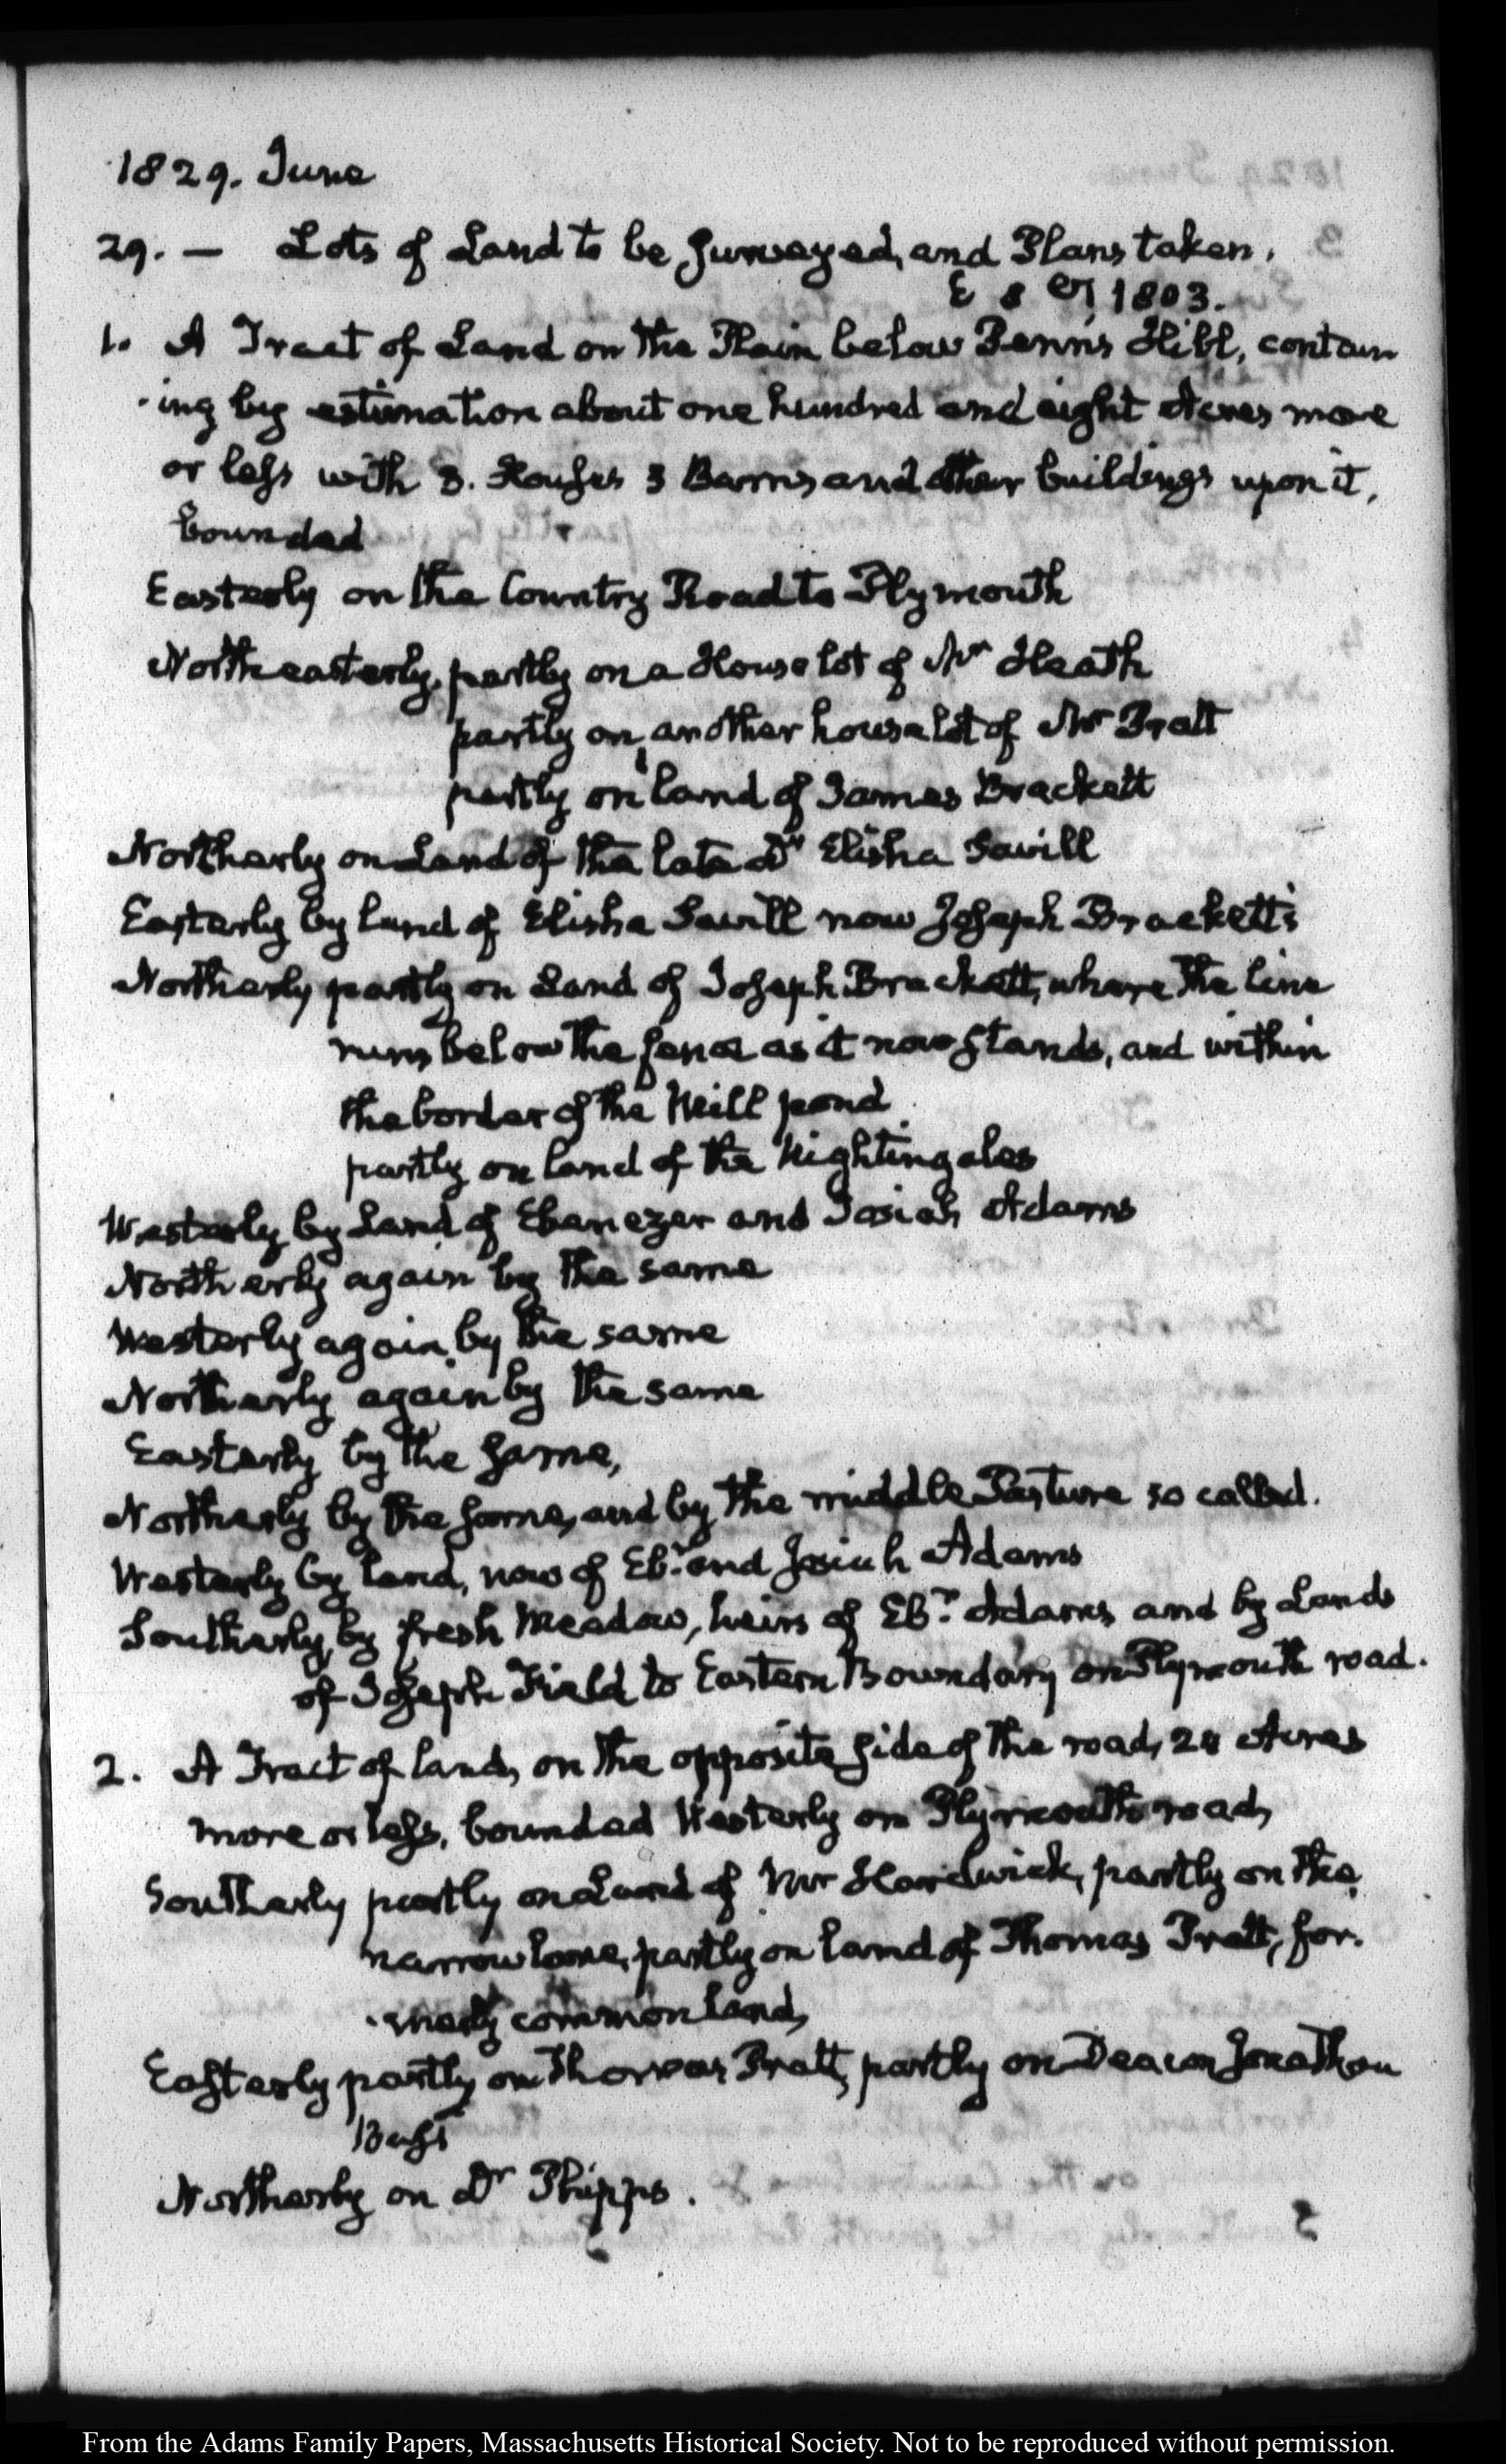 1829. June
29. — Lots of Land to be Surveyed, and Plans taken.
E 8 1803.
1. A Tract of Land on the Plain below Penn's Hill, contain
-ing by estimation about one hundred and eight Acres more
or less with 3. Houses 3 Barns and other buildings upon it,
bounded
Easterly on the Country Road to Plymouth
Northeasterly, partly on a House lot of Mr Heath
partly on another house lot of Mr Pratt
partly on land of James Brackett
Northerly on Land of the late Dr Elisha Savill
Easterly by land of Elisha Savill now Joseph Brackett's
Northerly partly on Land of Joseph Brackett, where the line
runs below the fence as it now stands, and within
the border of the Mill pond
partly on land of the Nightingales
Westerly by Land of Ebenezer and Josiah Adams
Northerly again by the same
Westerly again by the same
Northerly again by the same
Easterly by the same,
Northerly by the same, and by the middle Pasture so called.
Westerly by land, now of Ebr. and Josiah Adams
Southerly, by fresh Meadow, heirs of Ebr. Adams and by Lands
of Joseph Field to Eastern Boundary on Plymouth road.
2. A Tract of land, on the opposite side of the road, 28 Acres
more or less, bounded Westerly on Plymouth road,
Southerly partly on Land of Mr Hardwick, partly on the
narrow lane, partly on land of Thomas Pratt, for-
-merly common land,
Easterly partly on Thomas Pratt, partly on Deacon Jonathan
Bass
Northerly on Dr Phipps.
From the Adams Family Papers, Massachusetts Historical Society. Not to be reproduced without permission.